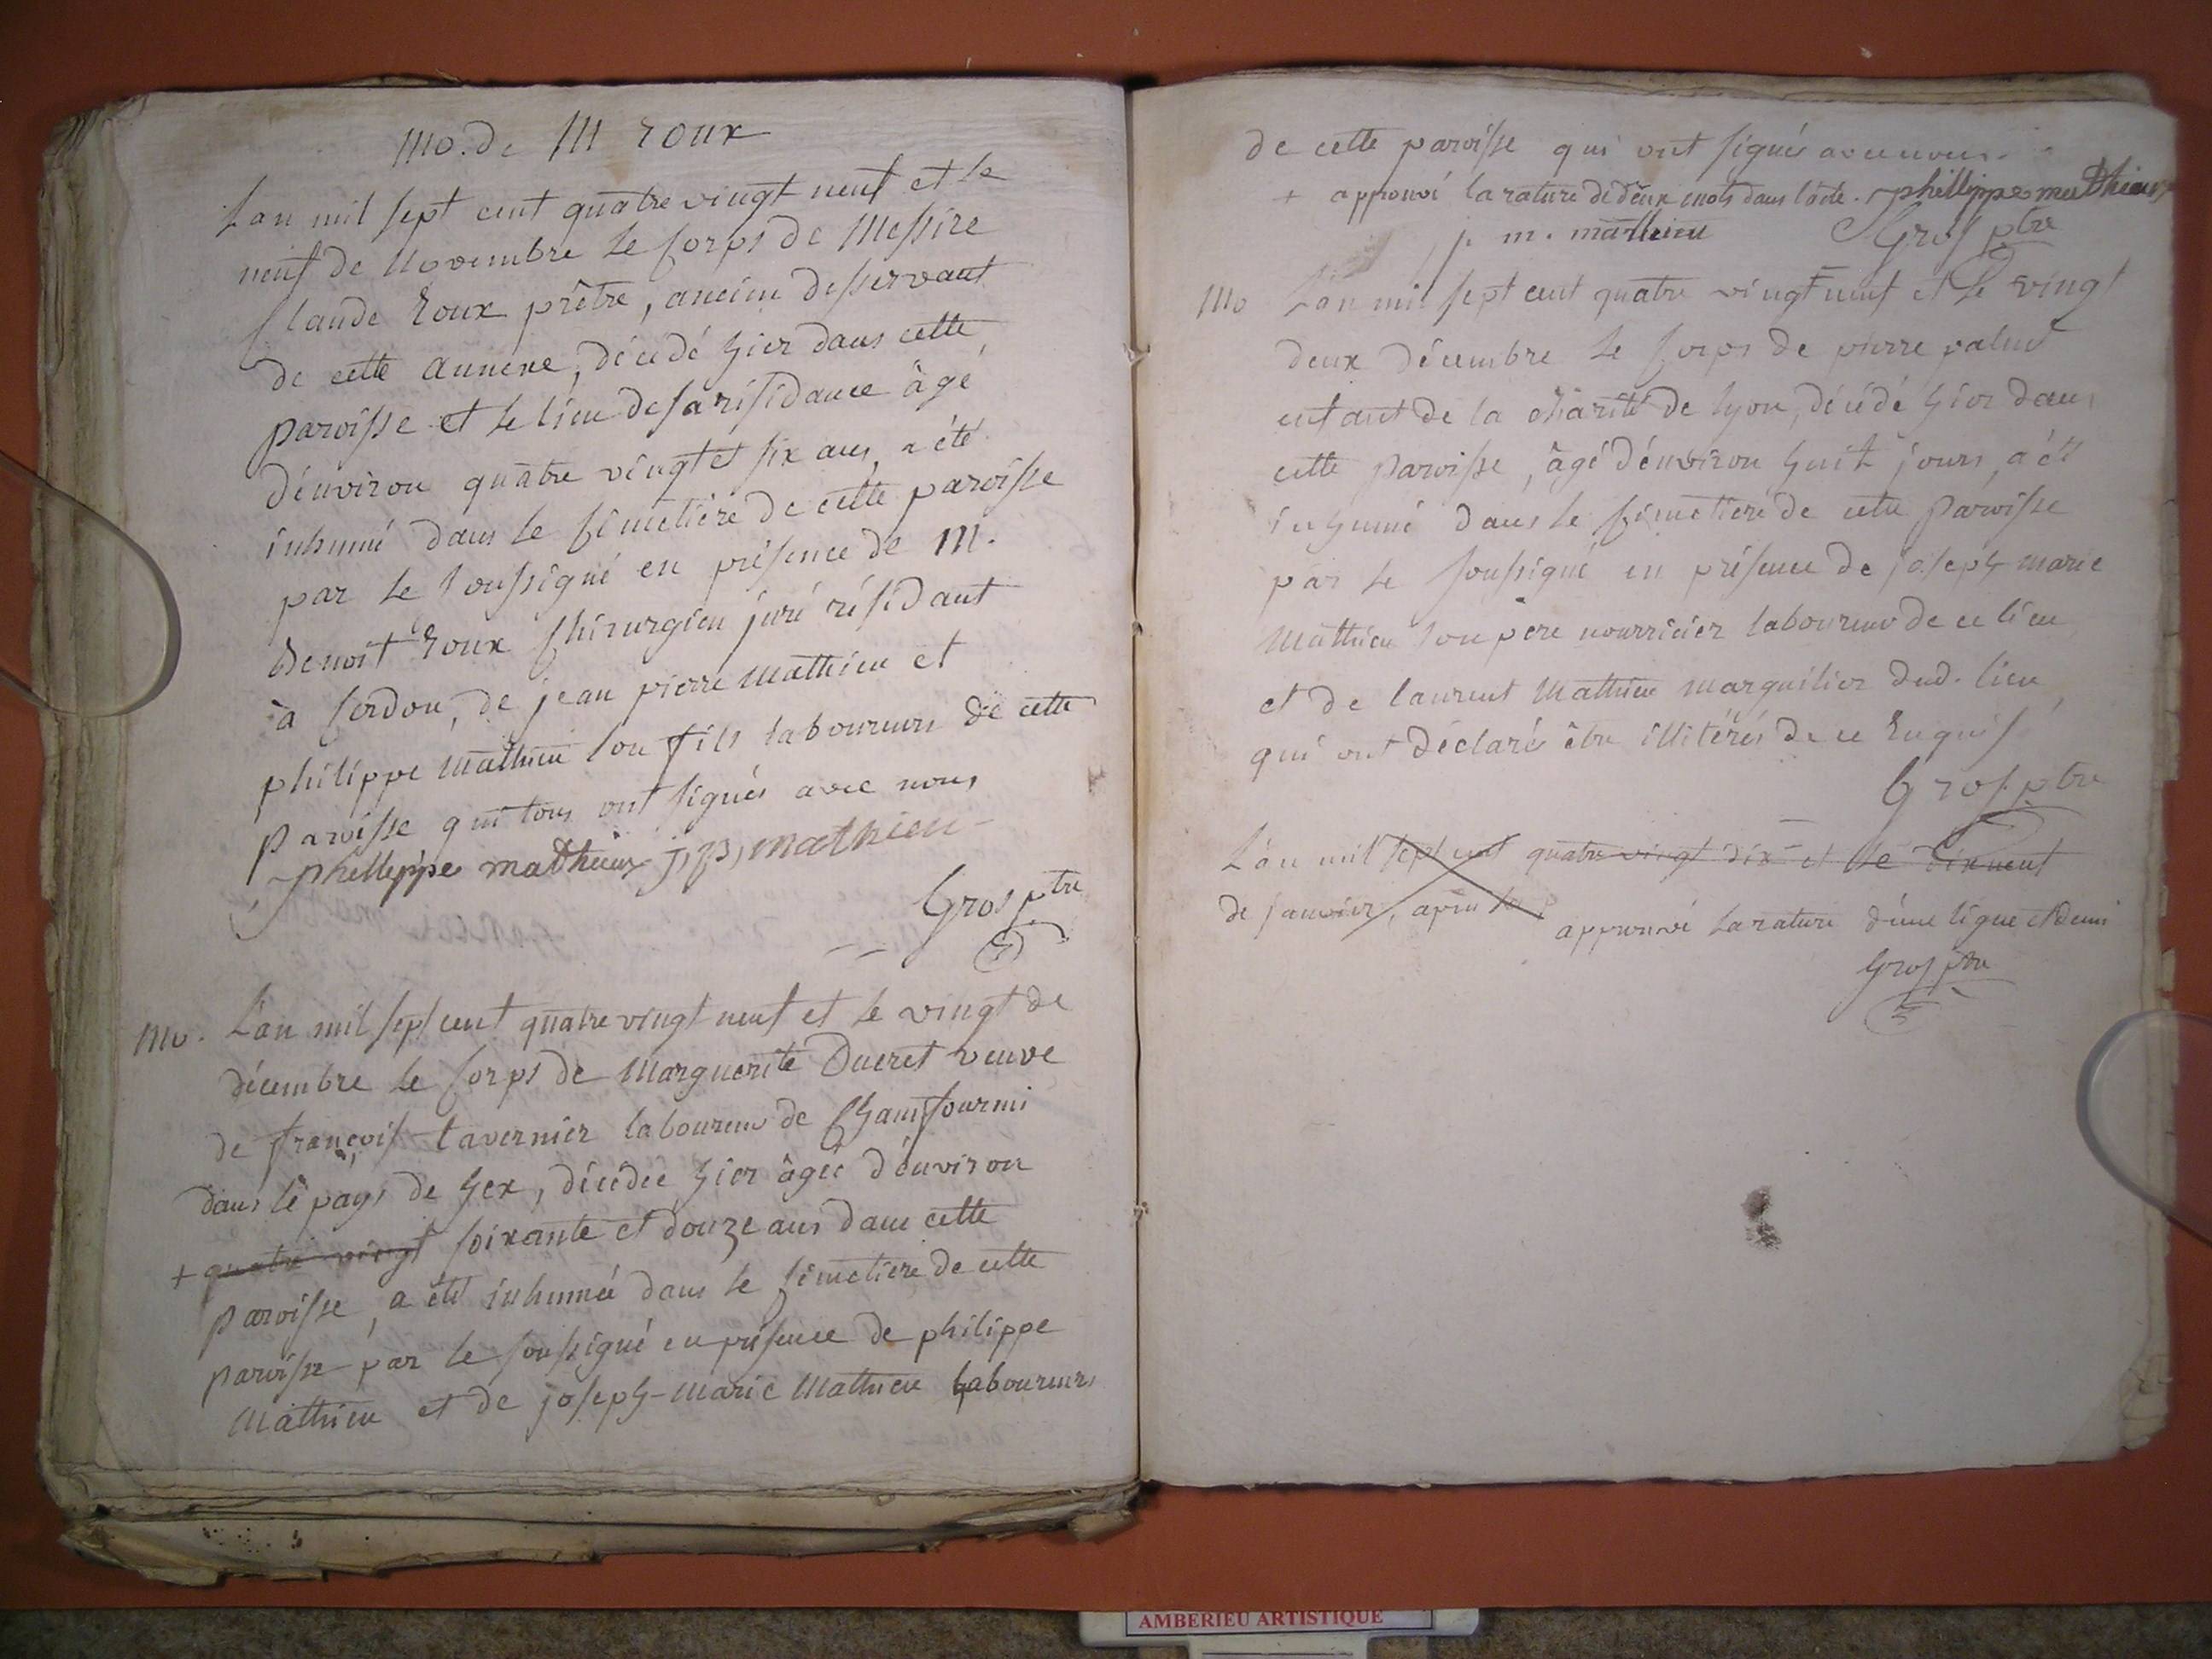 Mo. de M roux
L'an mil sept cent quatre vingt neuf et le
neuf de Novembre le Corps de Messire
Claude Roux prêtre, ancien desservant
de cette annexe, décédé hier dans cette
paroisse et le lieu de sa résidance âgé
d'environ quatre vingt et six ans, a été
inhumé dans le Cimetière de cette paroisse
par le soussigné en présence de M.
Benoit Roux Chirurgien juré résidant
à Cerdon, de jean pierre Mathieu et
philippe Mathieu son fils laboureurs de cette
paroisse qui tous ont signés avec nous
phillippe matthieux j, p, mathieu
Gros ptre
Mo. L'an mil sept cent quatre vingt neuf et le vingt de
décembre le Corps de Marguerite Ducret veuve
de françois tavernier laboureur de Chamfourmi
dans le pays de Gex, décédée hier âgée d'environ
+ quatre vingt soixante et douze ans dans cette
paroisse, a été inhumée dans le Cimetière de cette
paroisse par le soussigné en présence de philippe
Mathieu et de joseph-Marie Mathieu laboureurs
de cette paroisse qui ont signés avec nous.
+ approuvé la rature de deux mots dans l'acte. phillippe matthieux
j. m. mathieu Gros ptre
Mo L'an mil sept cent quatre vingt neuf et le vingt
deux décembre le Corps de pierre palud
enfant de la charité de lyon, décédé hier dans
cette paroisse, âgé d'environ huit jours, a été
inhumé dans le Cimetière de cette paroisse
par le soussigné en présence de joseph marie
Mathieu son père nourricier laboureur de ce lieu
et de laurent Mathieu marguilier dud. lieu
qui ont déclarés être illitérés de ce Enquis
Gros ptre
L'an mil sept cent quatre vingt dix et le dixneuf
de janvier, après
approuvé la rature d'une ligne et demi
Gros ptre
AMBERIEU ARTISTIQUE